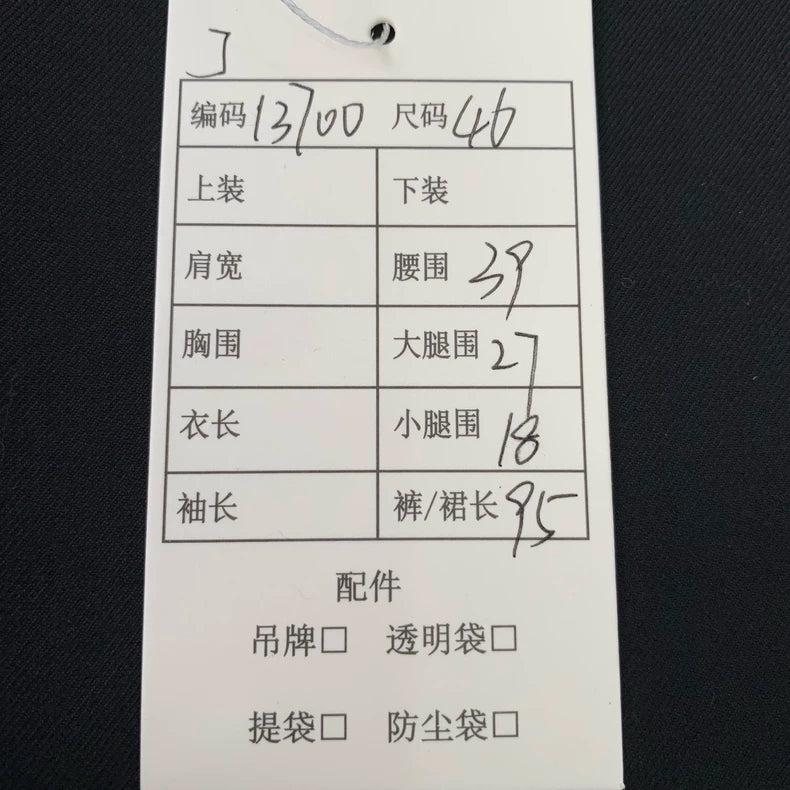 J
编码 13700 尺码 46
上装 下装
肩宽 腰围 39
胸围 大腿围 27
衣长 小腿围 18
袖长 裤/裙长 95
配件
吊牌□ 透明袋□
提袋□ 防尘袋□